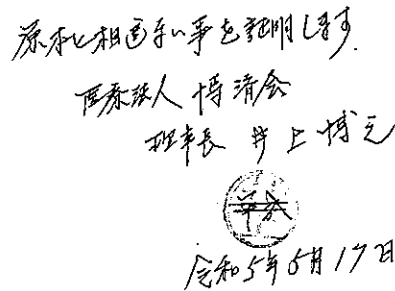 原本と相違ない事を証明します.
医療法人 博済会
理事長 井上博元
令和5年5月17日